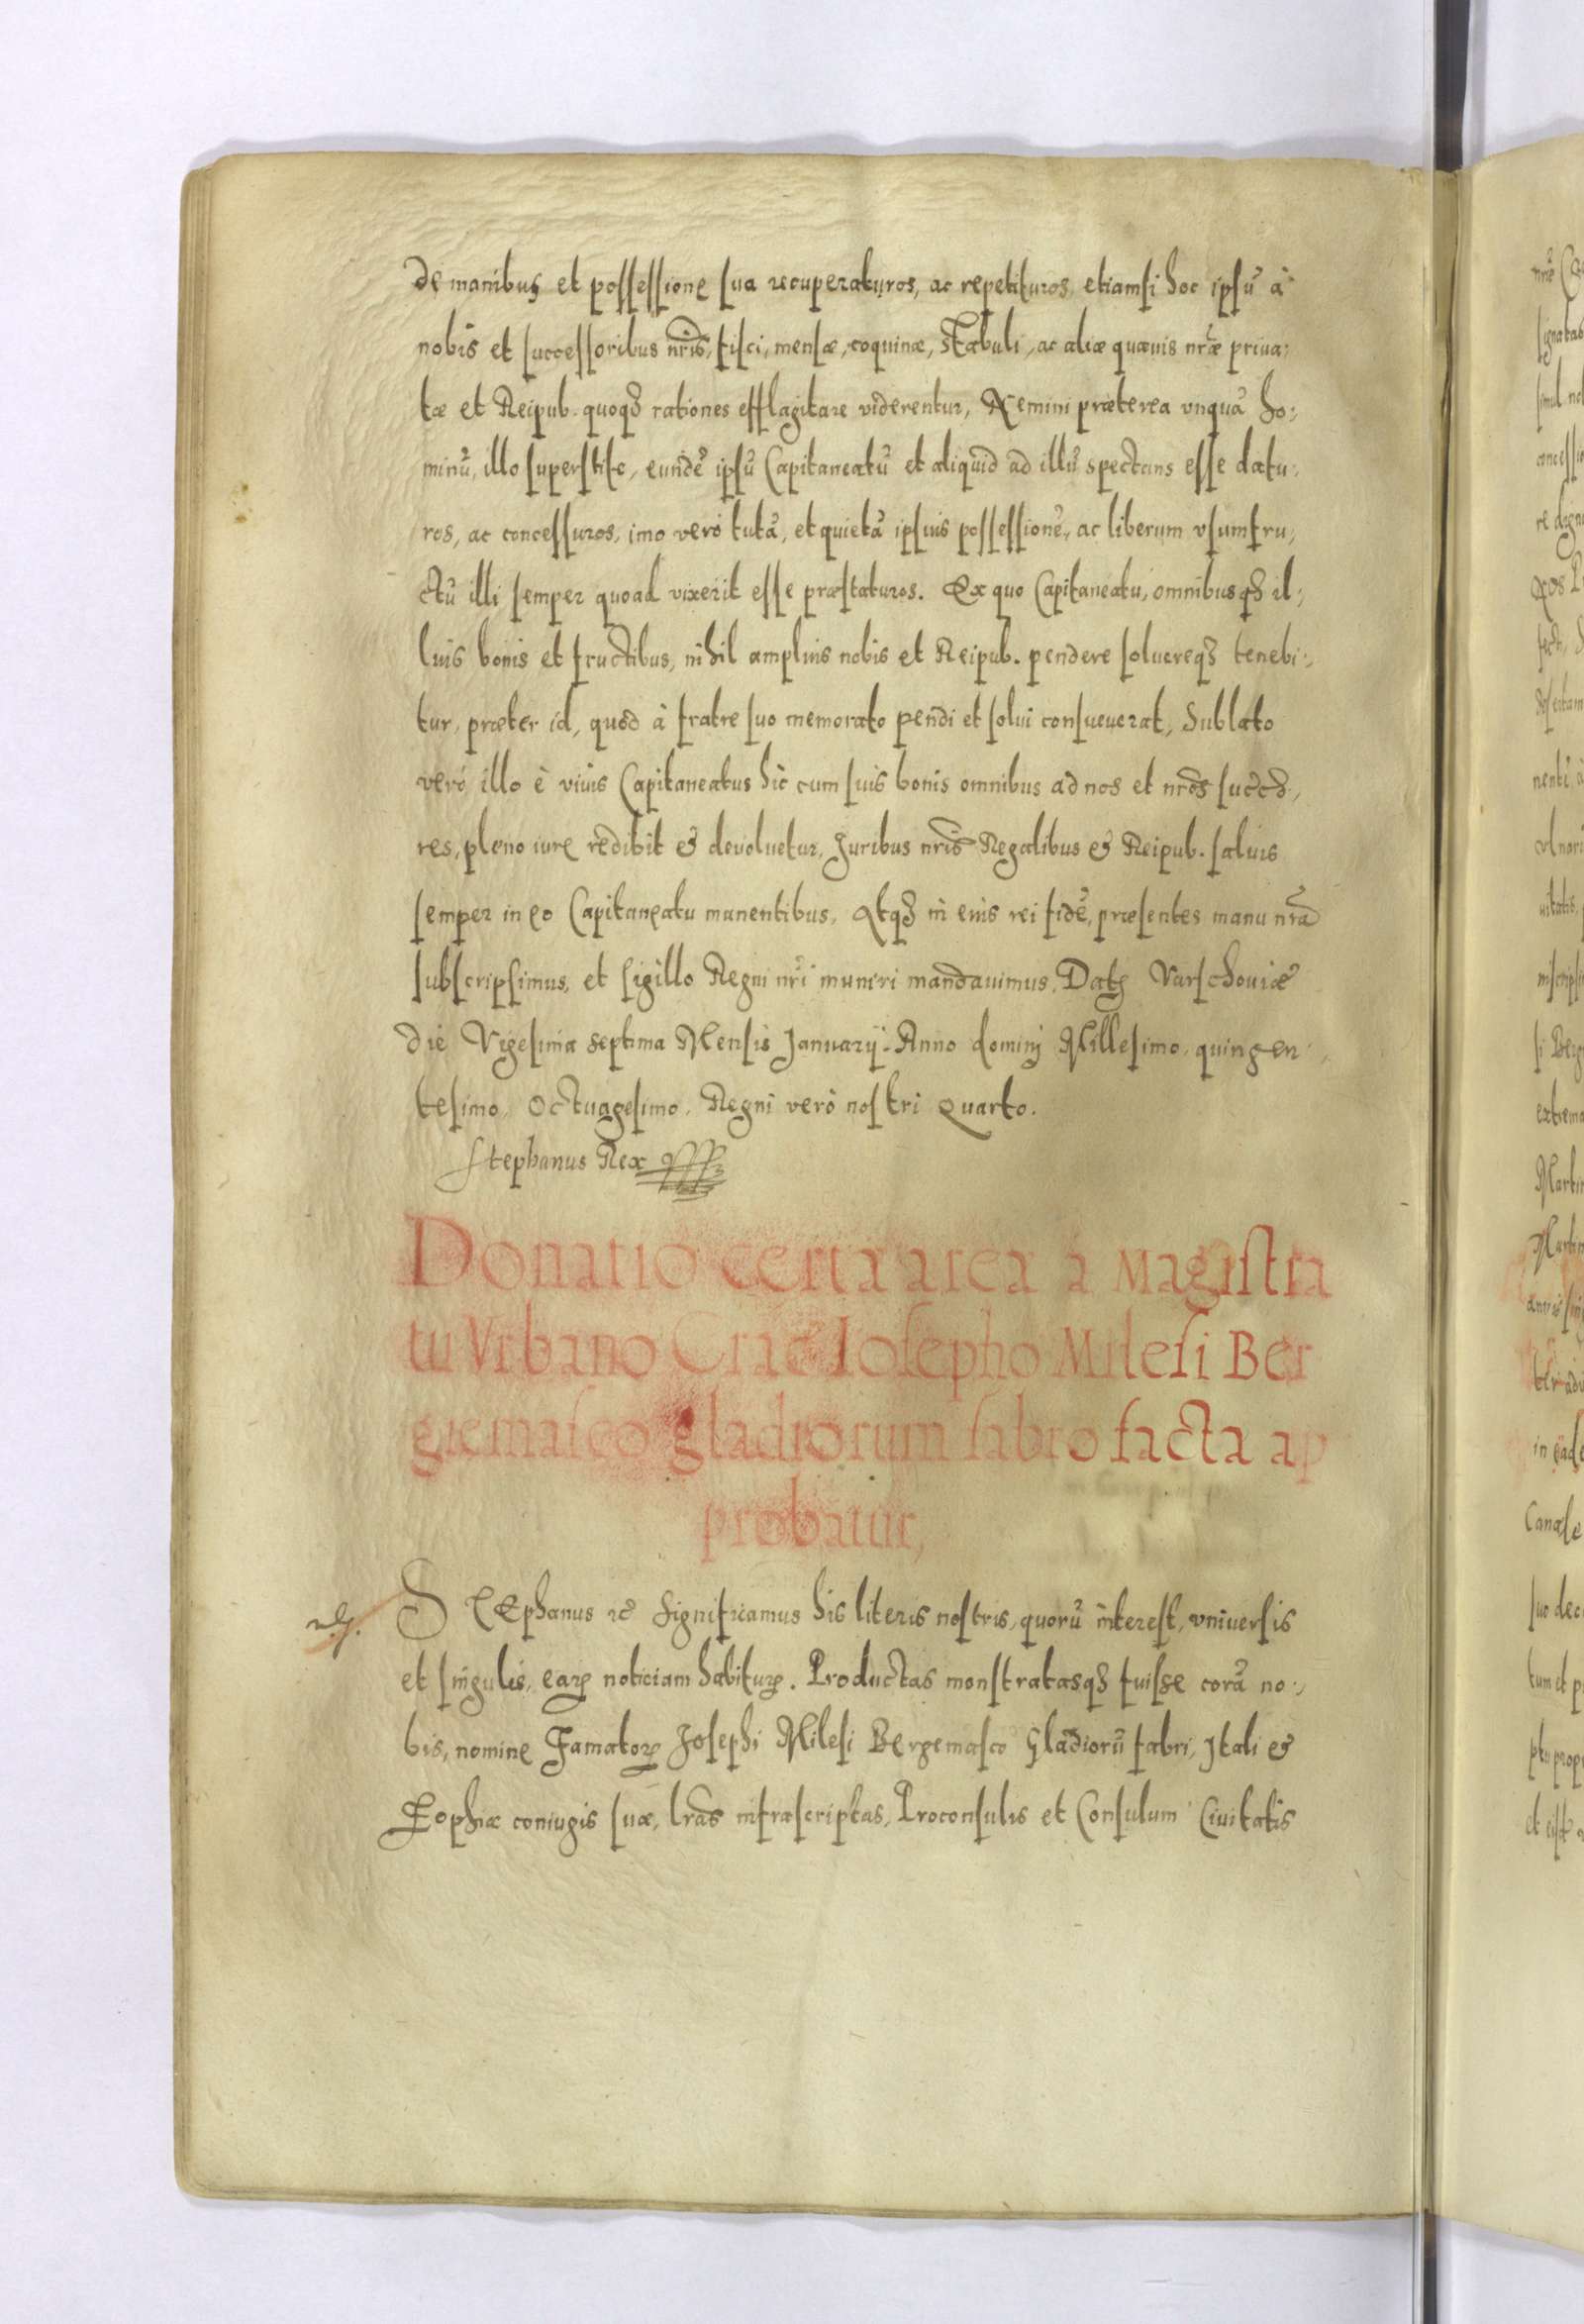 de manibus et possessione sua recuperaturos, ac repetituros, etiamsi hoc ipsũ à
nobis et successoribus nr̃is, fisci, mensæ, coquinæ, stabuli, ac aliæ quævis nr̃æ priua:
tæ et Reipub. quoq3 rationes efflagitare viderentur, Nemini præterea vnquã ho:
minũ, illo superstite, eundẽ ipsũ Capitaneatũ et aliquid ad illũ spectans esse datu:
ros, ac concessuros, imo verò tutã, et quietã ipsius possessionẽ, ac liberum vsumfru,
ctũ illi semper quoad vixerit esse præstaturos. Ex quo Capitaneatu, omnibusq3 il:
lius bonis et fructibus, nihil amplius nobis et Reipub. pendere soluereq3 tenebi:
tur, præter id, quod à fratre suo memorato pendi et solui consueuerat, Sublato
verò illo è viuis Capitaneatus hic cum suis bonis omnibus ad nos et nr̃os succõ,
res, pleno iure redibit & deuoluetur, Juribus nr̃is Regalibus & Reipub. saluis
semper in eo Capitaneatu manentibus. Atq3 in eius rei fidẽ, præsentes manu nr̃a
subscripsimus, et sigillo Regni nr̃i muniri mandauimus. Datꝫ Varschouiæ
die Vigesima septima Mensis Januarij. Anno dominj Millesimo, quingen
tesimo, Octuagesimo, Regni verò nostri Quarto.
Stephanus Rex
Donatio certa area à Magistra
tu Vrbano Crac̃ Iosepho Milesi Ber
giemasco gladiorum fabro facta ap
probatur,
STEphanus ꝛc̃ Significamus his literis nostris, quorũ interest, vniuersis
et singulis, earꝝ noticiam habiturꝭ. Productas monstratasq3 fuisse corã no:
bis, nomine Famatorꝝ Josephi Milesi Bergemasco Gladiorũ fabri, Itali &
Zophiæ coniugis suæ, lr̃as infrascriptas, Proconsulis et Consulum Ciuitatis